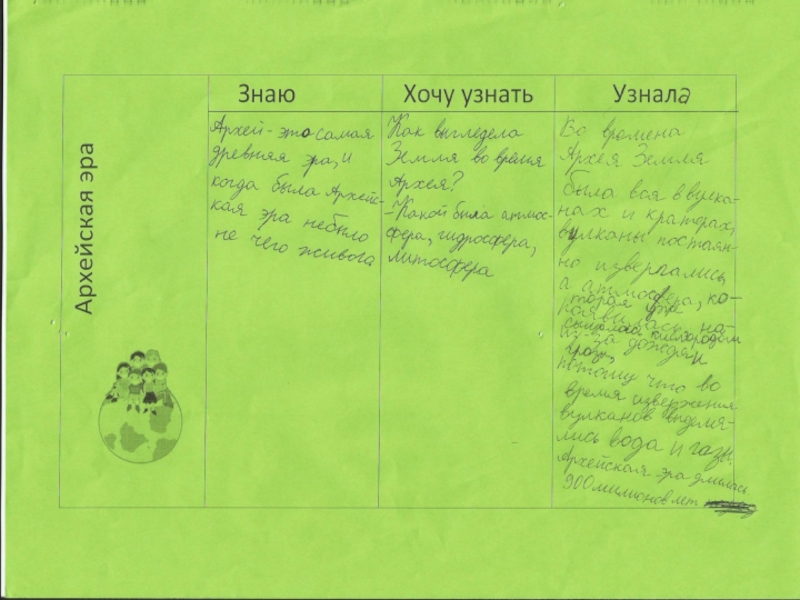 Архейская эра
Знаю
Архей - это самая
древняя эра, и
когда была Архейс-
кая эра небыло
не чего живога
Хочу узнать
Как выгледела
Земля во время
Архея?
- Какой была атмос-
фера, гидросфера,
литосфера
Узнала
Во времена
Архея Земля
была вся в вулка-
нах и кратерах,
вулканы постаян-
но извергались,
а атмосфера, ко-
торая уже
появилась, на-
сыщалась кислородом
из-за дождей и
грозы,
потому что во
время извержения
вулканов выделя-
лись вода и газы.
Архейская эра длилась
900 милионов лет